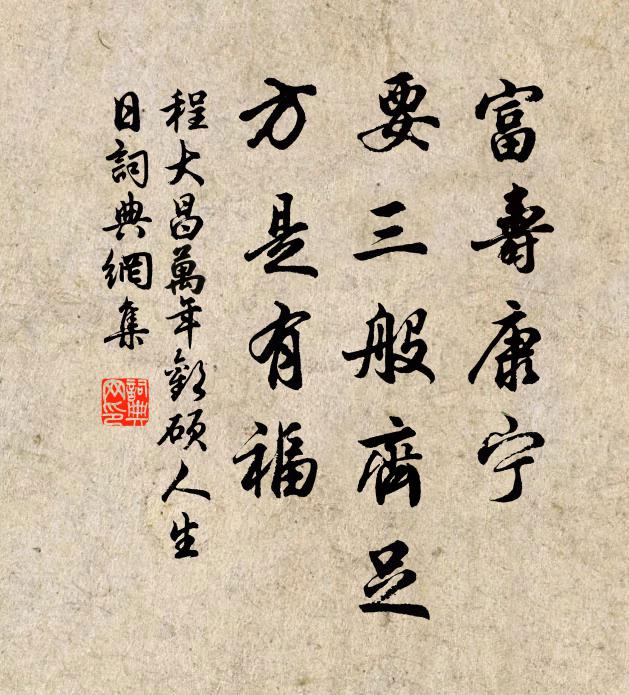 富壽康宁
要三般齊足
方是有福
程大昌萬年歡硕人生
日詞典網集
詞典
网印